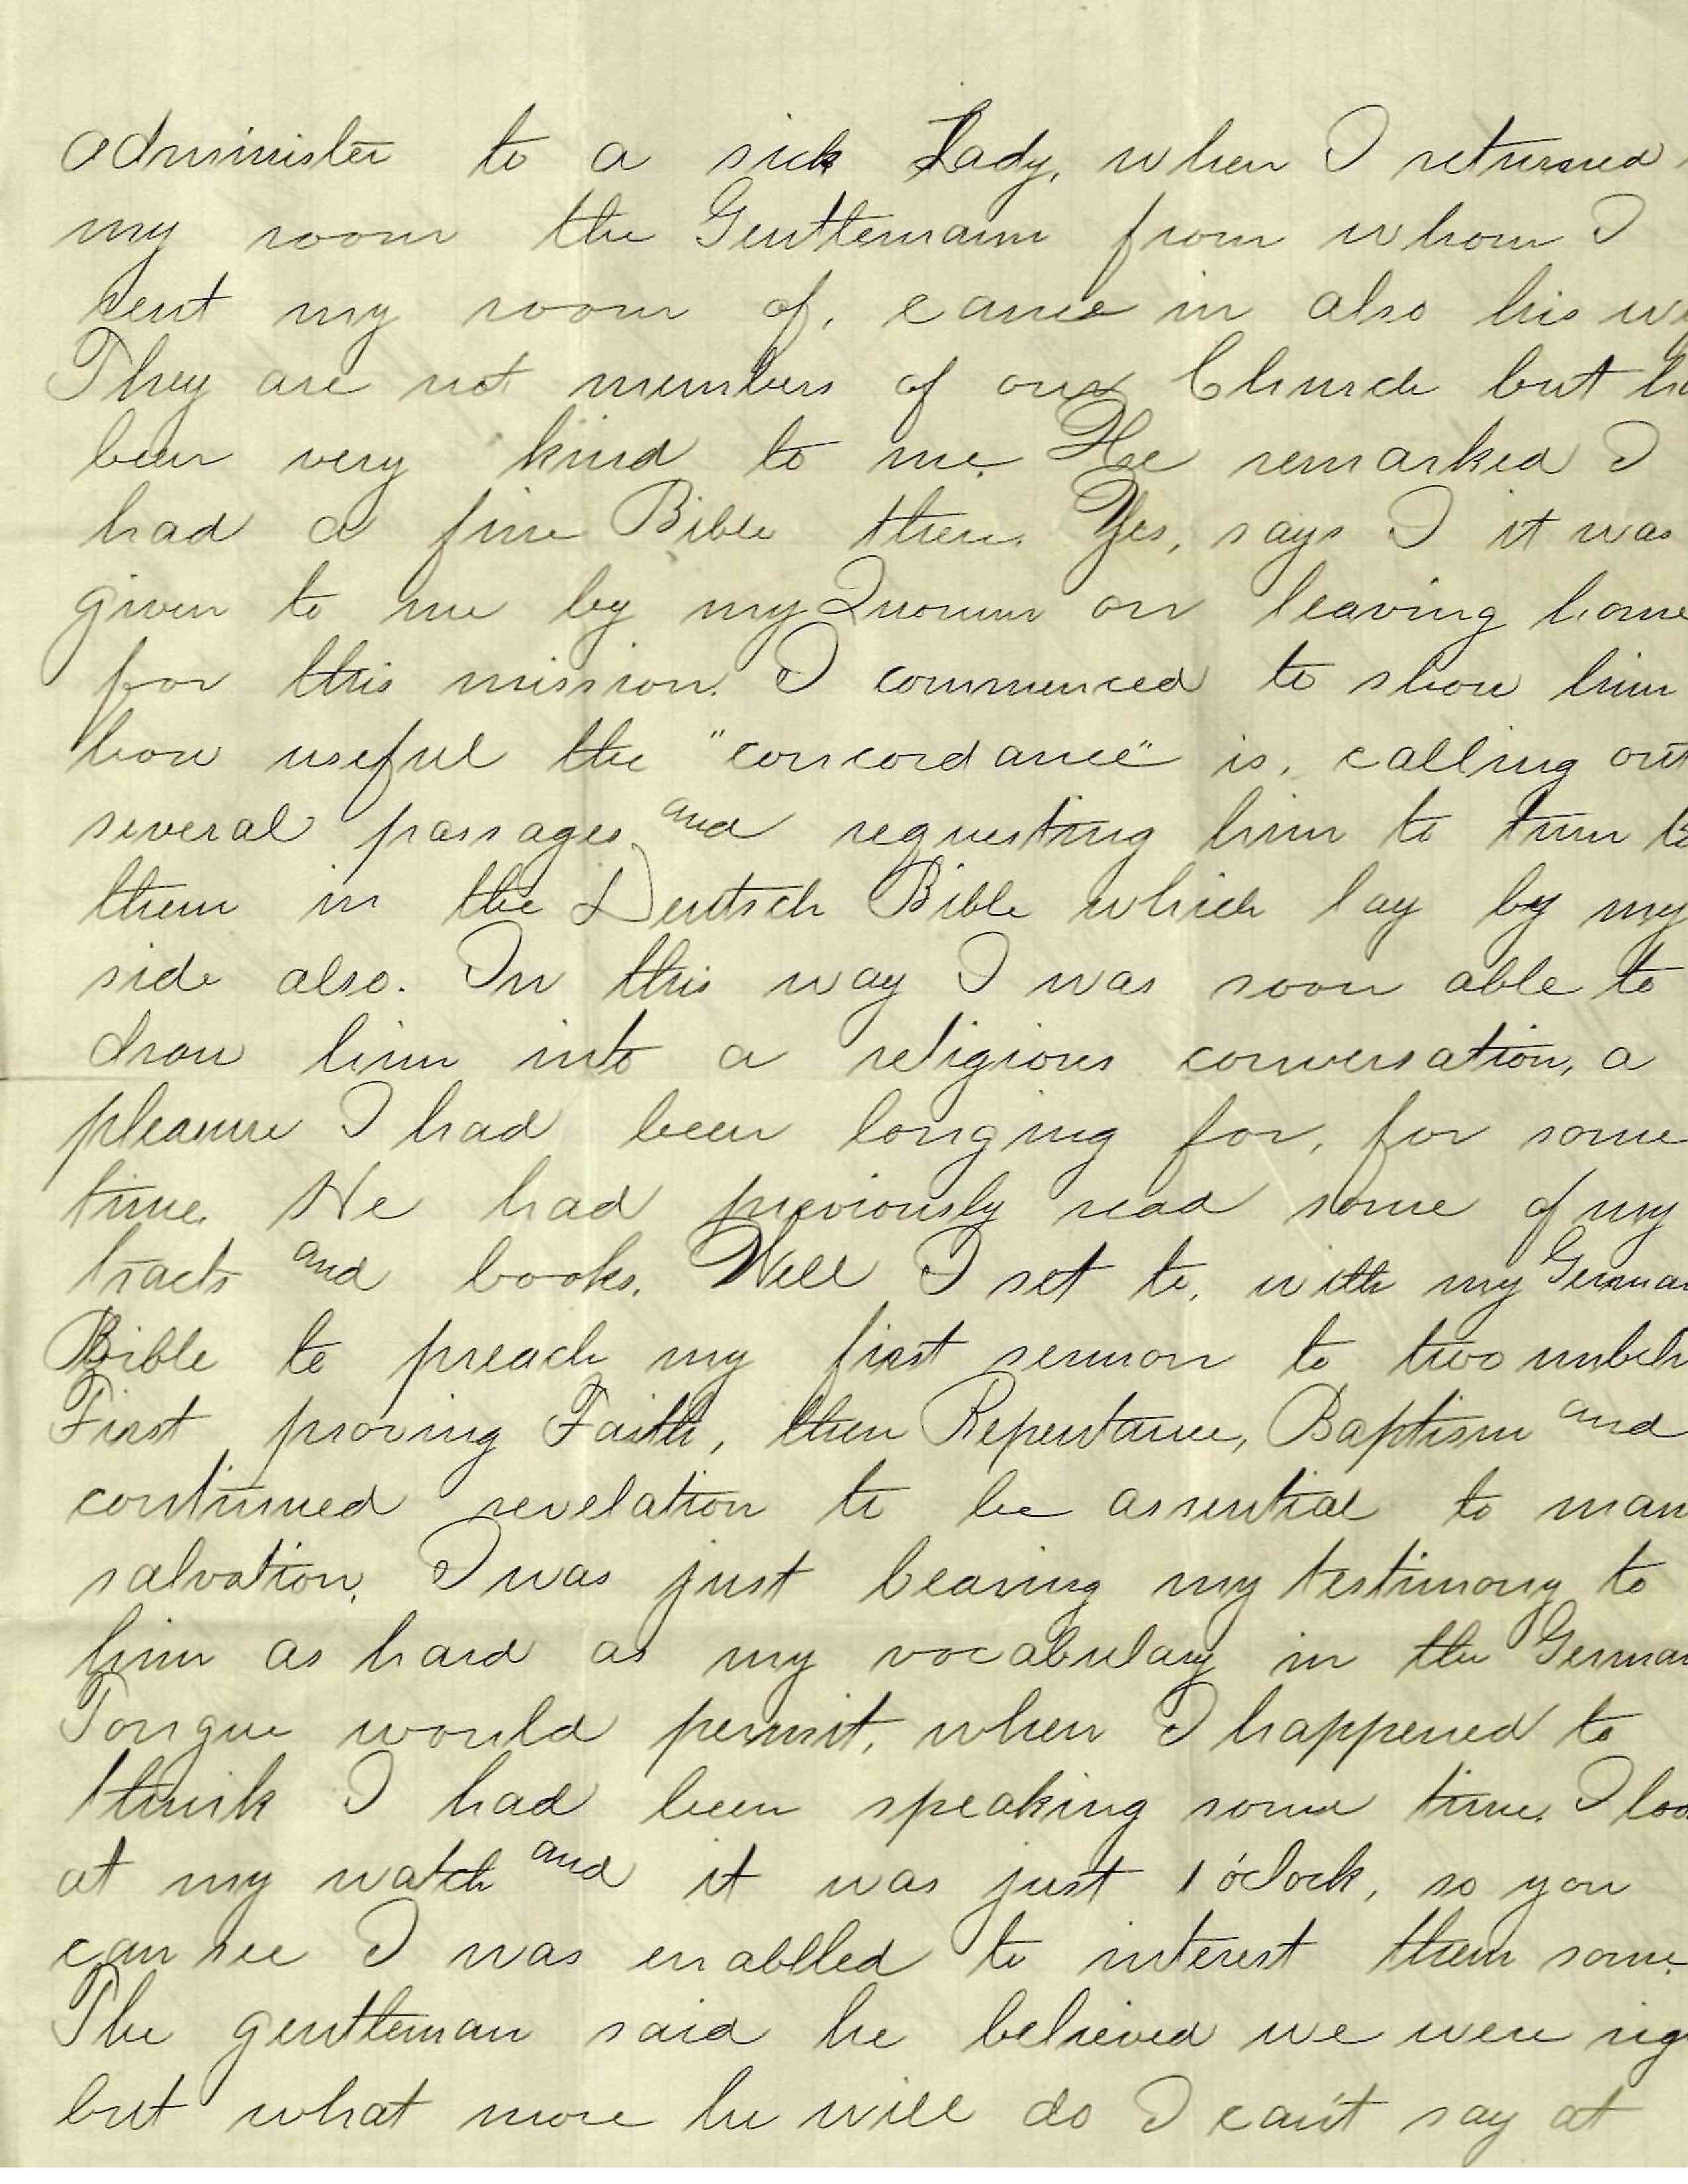 administer to a sick Lady, when I returned
my room the Gentlemann from whom I
rent my room of, came in also his
They are not members of our Church but
been very kind to me. He remarked I
had a fine Bible there. Yes, says I it was
given to me by my Quorum on leaving home
for this mission. I commenced to show him
how useful the "concordance" is, calling out
several passages, and requesting him to turn to
them in the Deutsch Bible which lay by my
side also. In this way I was soon able to
draw him into a religious conversation, a
pleasure I had been longing for, for some
time. He had previously read some of my
tracts and books. Well I set to, with my German
Bible to preach my first sermon to two
First proving Faith, then Repentance, Baptism and
continued revelation to be assential to man
salvation. I was just bearing my testimony to
him as hard as my vocabulary in the German
Tongue would permit, when I happened to
think I had been speaking some time. I
at my watch and it was just 1 o'clock, so you
can see I was enablled to interest them some.
The gentleman said he believed we were
but what more he will do I can't say at